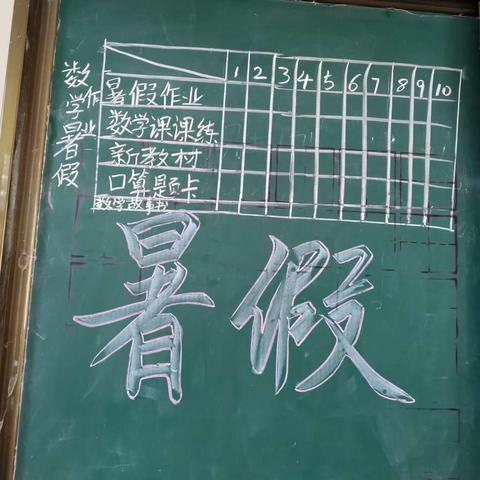 数学暑假
作业
1 2 3 4 5 6 7 8 9 10
暑假作业
数学课课练
新教材
口算题卡
数学故事书
暑假